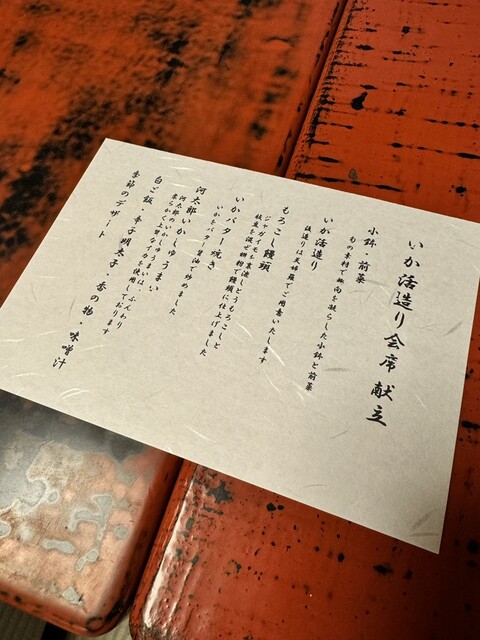 いか活造り会席 献立
小鉢・前菜
旬の素材で趣向を凝らした小鉢と前菜
いか活造り
後造りは天婦羅でご用意いたします
もろこし饅頭
ジャガイモを裏漉しとうもろこしと
枝豆を混ぜ餅粉で饅頭に仕上げました
いかバター焼き
いかをバター醤油で炒めました
河太郎いかしゅうまい
河太郎のいかしゅうまいは、ふんわり
柔らかく上質なイカを使用しております
白ご飯・辛子明太子・香の物・味噌汁
季節のデザート